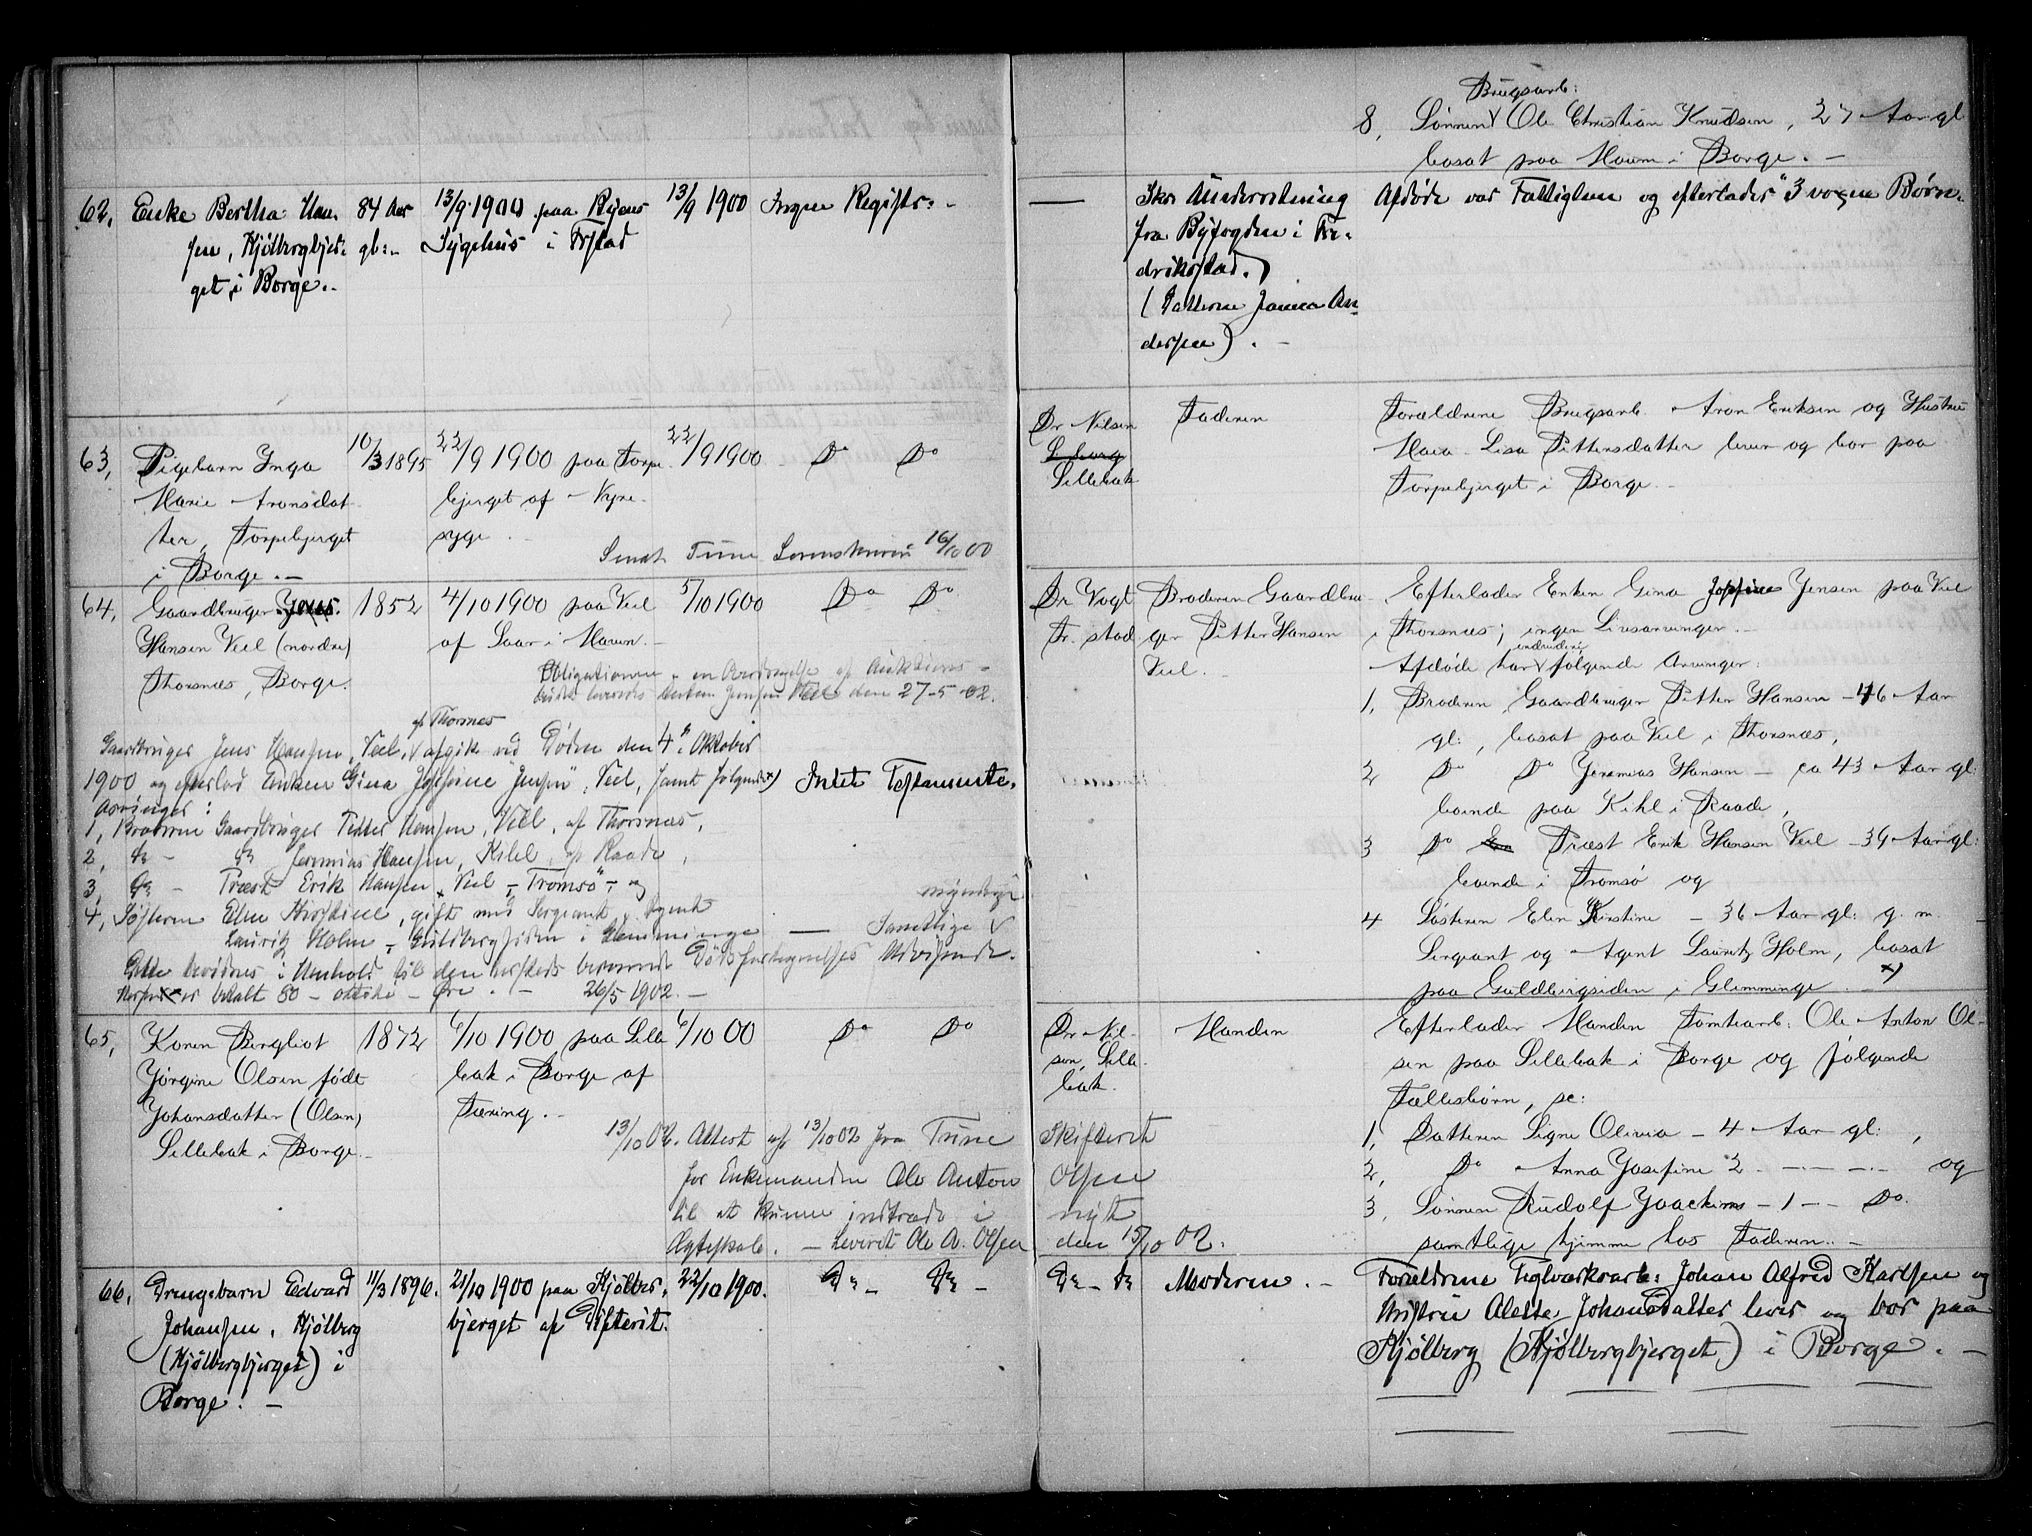 Brugsarb:
8, Sønnen Ole Christian Knudsen, 27 Aar gl
bosat paa Haum i Borge. —
62, Enke Bertha Han- 84 Aar 13/9 1900 paa Byens 13/9 1900 Ingen Registr: -
sen, Kjølbergbjer- gl:- Sygehus i Frstad
get, i Borge.-
— Skr. Underretning
fra Byfogden i Fre-
drikstad.
(Datteren Janna An-
dersen). -
Afdøde var Fattiglem og efterlader 3 voxne Børn.
63, Pigebarn Inga 10/3 1895 22/9 1900 paa Torpe- 22/9 1900 Do Do
Marie Aronsdat- bjerget af Nyre-
ter, Torpebjerget syge.
i Borge. —
Sendt Tune Sorenskriveri 16/10 00
Dr Nilsen
Sellebak
Faderen
Forældrene Brugsarb. Aron Eriksen og Hustru
Maia Lisa Pettersdatter lever og bor paa
Torpebjerget i Borge. -
64, Gaardbruger Jens 1852 4/10 1900 paa Veel 5/10 1900 Do Do
Hansen Veel (nordre) af Saar i Maven.-
Thorsnæs, Borge.
Obligationen - en Overdragelse af Auktions-
den 27-5-02.
Dr Vogt
Fr.stad
Broderen Gaardbru-
ger Petter Hansen
Veel. -
Efterlader Enken Gina Josefine Jensen paa Veel
i Thorsnæs; ingen Livsarvinger. -
Afdøde har endvidere følgende Arvinger:
1, Broderen, Gaardbruger Petter Hansen - 46 Aar
gl:, bosat paa Veel i Thorsnæs,
2 Do Do Jeremias Hansen - ca 43 Aar gl:
boende paa Kihl i Raade,
3 Do Præst Erik Hansen Veel - 39 Aar gl:
boende i Tromsø og
4 Søsteren Elen Kirstine - 36 Aar gl: g. m.
Sergeant og Agent Lauritz Holm, bosat
paa Guldbergsiden i Glemminge. - x)
Gaardbruger Jens Hansen, Veel, af Thorsnæs afgik ved Døden den 4de Oktober
1900 og efterlod Enken Gina Josefine Jensen, Veel, samt følgende x) Intet Testamente.
Arvinger:
1, Broderen Gaardbruger Petter Hansen, Veel, af Thorsnæs,
2, do - do Jeremias Hansen, Kihl, af Raade,
3, do - Præst Erik Hansen Veel - Tromsø - og
4, Søsteren Elen Kirstine, gift med Sergeant, Agent
Lauritz Holm - Guldbergsiden i Glemminge — Samtlige myndige
Dette bevidnes i Henhold til den herfteds beroende Dødsfaldsanmeldelses Udvisende.
Herfor er betalt 80 - otteti - Øre. - 26/5 1902. -
65, Karen Bergliot 1872 6/10 1900 paa Selle- 6/10 00 Do Do
Jørgine Olsen født bak i Borge af
Johansdatter (Olsen) Tæring. -
Sellebak i Borge. -
13/10 02. Attest af 13/10 02 fra Tune Skifteret
for Enkemanden Ole Anton Olsen
til at kunne indtræde i nyt
Ægteskab. - Leveret Ole A. Olsen den 15/10 02.
Dr Nil-
sen, Selle-
bak.
Manden
Efterlader Manden Tomtearb: Ole Anton Ol-
sen paa Sellebak i Borge og følgende
Fællesbørn, se:
1, Datteren Signe Olivia - 4 Aar gl:,
2, Do Anna Josefine 2 - - - - og
3, Sønnen Rudolf Joachim - 1 - - Do.
samtlige hjemme hos Faderen. -
66, Drengebarn Edvard 11/3 1896. 21/10 1900 paa Kjølber- 22/10 1900. Do - Do -
Johansen, Kjølberg bjerget af Difterit.
(Kjølbergbjerget) i
Borge. -
Do - Do Moderen. -
Forældrene Teglværksarb: Johan Alfred Karlsen og
Hustru Alette Johansdatter lever og bor paa
Kjølberg (Kjølbergbjerget) i Borge. -